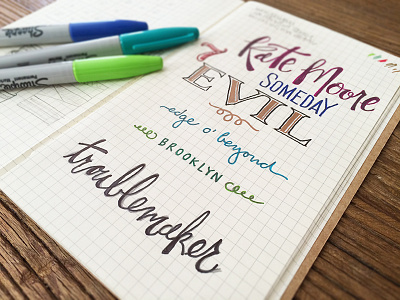 Kate Moore
SOMEDAY
7
EVIL
edge o' beyond
BROOKLYN
troublemaker
Sharpie
Sharpie